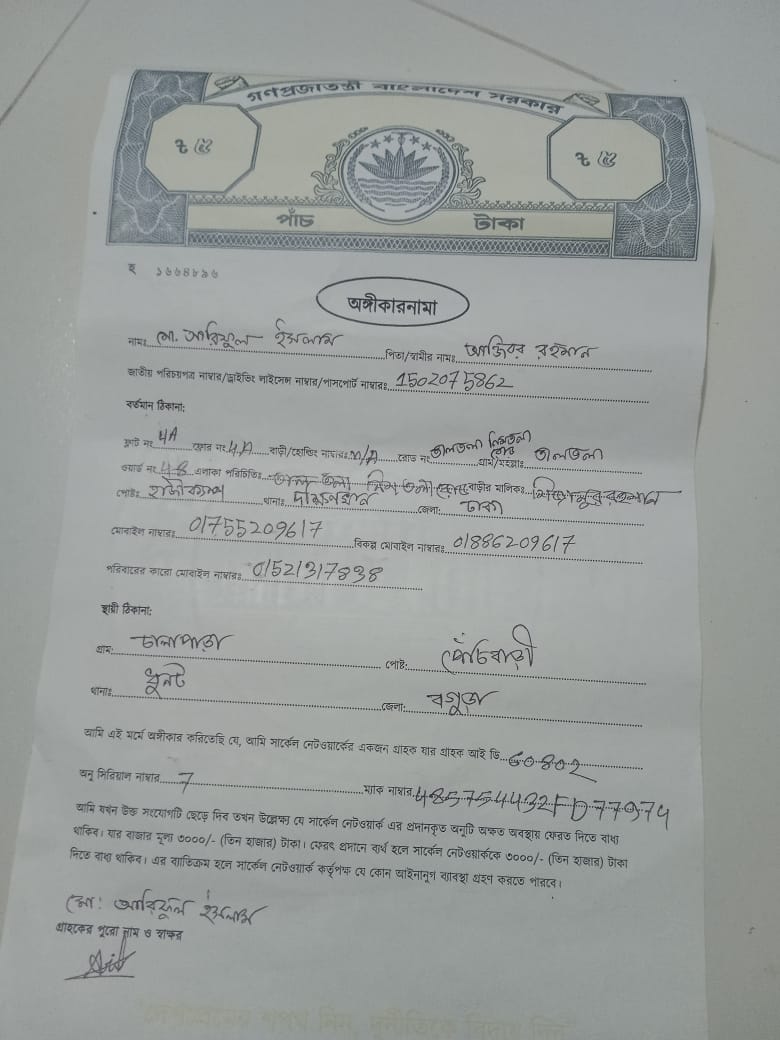 গণপ্রজাতন্ত্রী বাংলাদেশ সরকার
৳ ৫ ৳ ৫
পাঁচ টাকা
হ ১৬৬৪৮৯৬
অঙ্গীকারনামা
নামঃ মো. আরিফুল ইসলাম পিতা/স্বামীর নামঃ আজিবর রহমান
জাতীয় পরিচয়পত্র নাম্বার/ড্রাইভিং লাইসেন্স নাম্বার/পাসপোর্ট নাম্বারঃ 1502075862
বর্তমান ঠিকানা:
ফ্লাট নং 4A ফ্লোর নং 4A বাড়ী/হোল্ডিং নাম্বারঃ N/A রোড নং তালতলা নিমতলী রোড গ্রাম/মহল্লাঃ তালতলা
ওয়ার্ড নং 48 এলাকা পরিচিতিঃ তালতলা নিমতলী রোড বাড়ীর মালিকঃ
পোষ্টঃ হাজীক্যাম্প থানাঃ দক্ষিণখান জেলা: ঢাকা
মোবাইল নাম্বারঃ 01755209617 বিকল্প মোবাইল নাম্বারঃ 01886209617
পরিবারের কারো মোবাইল নাম্বারঃ 01521317838
স্থায়ী ঠিকানা:
গ্রাম: চালাপাড়া পোষ্ট: পেঁচিবাড়ী
থানাঃ ধুনট জেলা: বগুড়া
আমি এই মর্মে অঙ্গীকার করিতেছি যে, আমি সার্কেল নেটওয়ার্কের একজন গ্রাহক যার গ্রাহক আই ডি 60802
অনু সিরিয়াল নাম্বার 7 ম্যাক নাম্বার 485754432FD77974
আমি যখন উক্ত সংযোগটি ছেড়ে দিব তখন উল্লেক্ষ্য যে সার্কেল নেটওয়ার্ক এর প্রদানকৃত অনুটি অক্ষত অবস্থায় ফেরত দিতে বাধ্য
থাকিব। যার বাজার মূল্য ৩০০০/- (তিন হাজার) টাকা। ফেরৎ প্রদানে ব্যর্থ হলে সার্কেল নেটওয়ার্ককে ৩০০০/- (তিন হাজার) টাকা
দিতে বাধ্য থাকিব। এর ব্যতিক্রম হলে সার্কেল নেটওয়ার্ক কর্তৃপক্ষ যে কোন আইনানুগ ব্যাবস্থা গ্রহণ করতে পারবে।
মো: আরিফুল ইসলাম
গ্রাহকের পুরো নাম ও স্বাক্ষর
"দেশপ্রেমের শপথ নিন, দুর্নীতিকে বিদায় দিন"